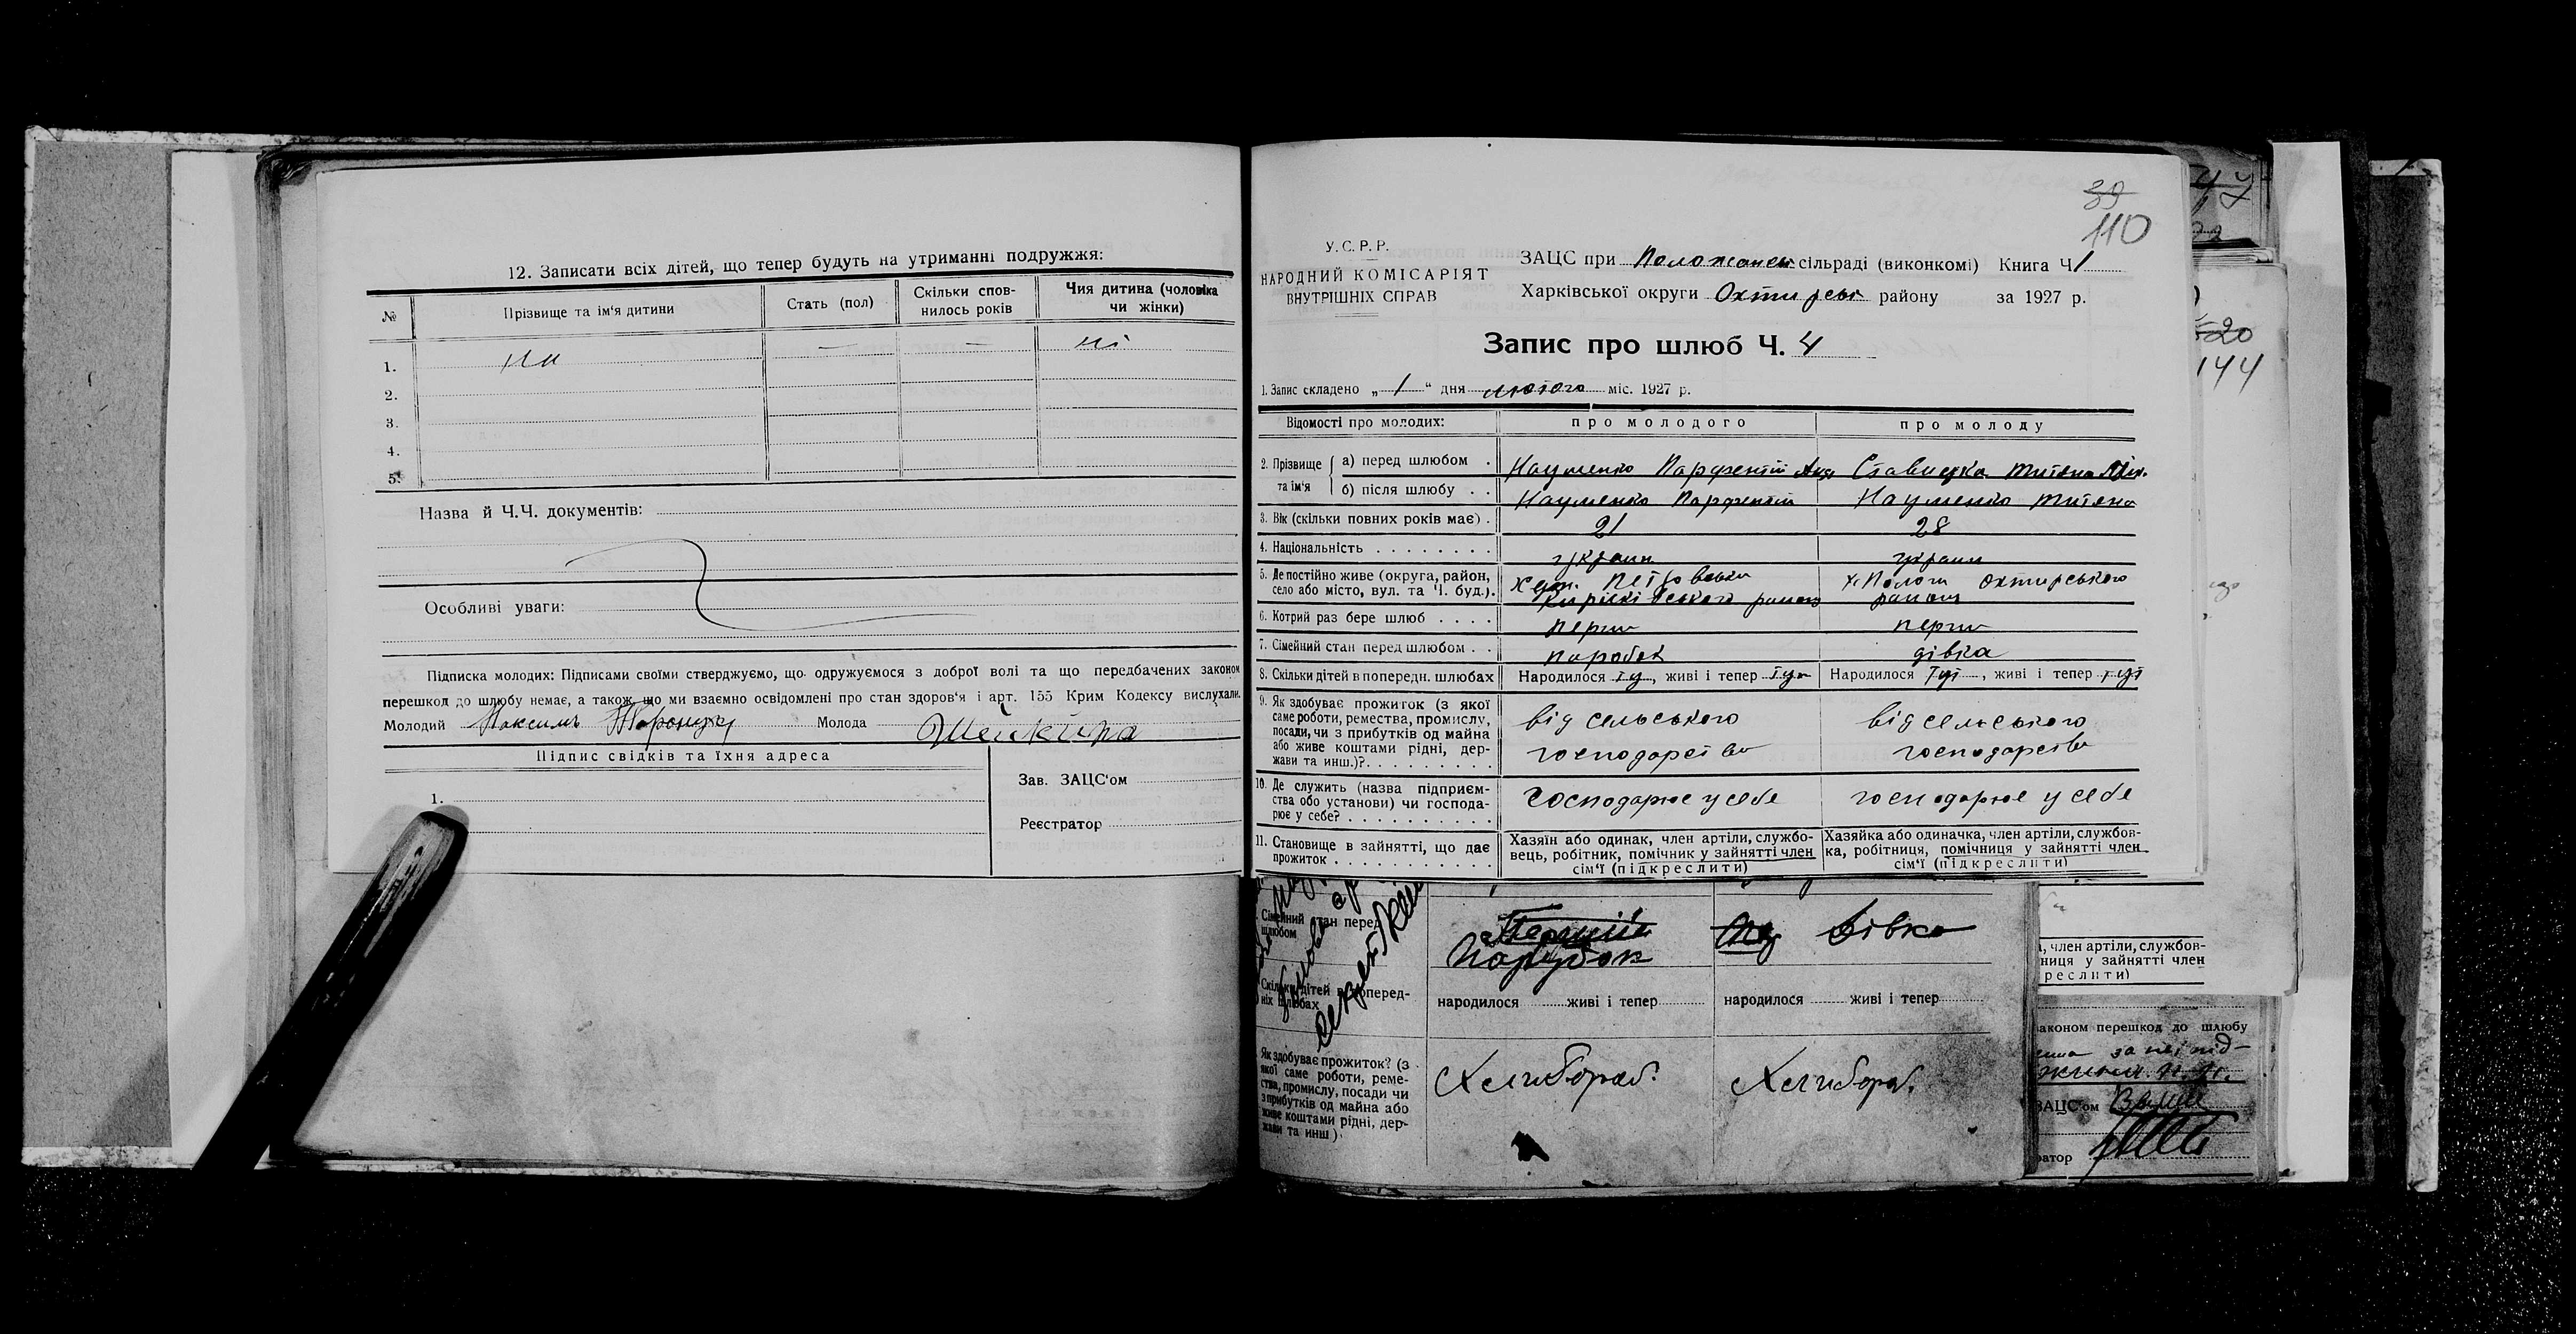 12. Записати всіх дітей, що тепер будуть на утриманні подружжя:
№ Прізвище та ім'я дитини Стать (пол) Скільки сповнилось років Чия дитина (чоловіка чи жінки)
1. ні — — ні
2.
3.
4.
5.
Назва й Ч.Ч. документів:
Особливі уваги:
Підписка молодих: Підписами своїми стверджуємо, що одружуємося з доброї волі та що передбачених законом
перешкод до шлюбу немає, а також що ми взаємно освідомлені про стан здоров'я і арт. 155 Крим Кодексу вислухали.
Молодий Максимъ Молода
Підпис свідків та їхня адреса
Зав. ЗАЦС'ом
1.
Реєстратор
39
110
У.С.Р.Р.
НАРОДНИЙ КОМІСАРІЯТ
ВНУТРІШНІХ СПРАВ
ЗАЦС при сільраді (виконкомі) Книга Ч 1
Харківської округи Охтирськ району за 1927 р.
Запис про шлюб Ч. 4
1. Запис складено „ 1 “ дня лютого міс. 1927 р.
Відомості про молодих: про молодого про молоду
2. Прізвище та ім'я
а) перед шлюбом . Науменко Парфентій Анд Ставицка Титяна
б) після шлюбу . . Науменко Парфентій Науменко Титяна
3. Вік (скільки повних років має) . 21 28
4. Національність . . . . . . . . україн україн
5. Де постійно живе (округа, район, село або місто, вул. та Ч. буд.). Хут. Петровськи Киріківського району х. Пологи Охтирського району
6. Котрий раз бере шлюб . . . . перш перш
7. Сімейний стан перед шлюбом . . паробок дівка
8. Скільки дітей в попередн. шлюбах Народилося , живі і тепер Народилося , живі і тепер
9. Як здобуває прожиток (з якої
саме роботи, ремества, промислу,
посади, чи з прибутків од майна
або живе коштами рідні, дер-
жави та инш.)?. . . . . . . . .
від сельського
господарства
від сельського
господарства
10. Де служить (назва підприєм-
ства обо установи) чи господа-
рює у себе? . . . . . . . . . .
господарює у себе господарює у себе
11. Становище в зайнятті, що дає
прожиток . . . . . . . . . . .
Хазяїн або одинак, член артіли, службо-
вець, робітник, помічник у зайнятті член
сім'ї (підкреслити)
Хазяйка або одиначка, член артіли, службов-
ка, робітниця, помічниця у зайнятті член
сім'ї (підкреслити)
Сімейний стан перед
шлюбом
Перший
Парубок
Дівка
Скільки дітей в поперед-
ніх шлюбах
народилося живі і тепер народилося живі і тепер
Як здобуває прожиток? (з
якої саме роботи, реме-
ства, промислу, посади чи
з прибутків од майна або
живе коштами рідні, дер-
жави та инш).
Хлибороб. Хлибороб.
20
144
, член артіли, службов-
ниця у зайнятті член
реслити)
аконом перешкод до шлюбу
ЗАЦС'ом
ратор